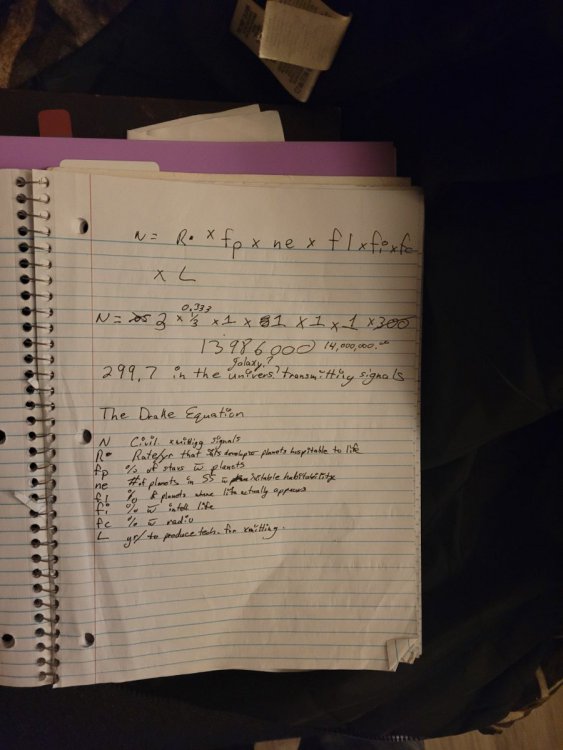 N = R* x fp x ne x fl x fi x fc
x L
0.333
N = 3 x 1/3 x 1 x 1 x 1 x 1 x 300
13986000 14,000,000.00
galaxy?
299.7 in the univers? transmitting signals
The Drake Equation
N Civil. xmitting signals
R* Rate/yr that develops planets hospitable to life
fp % of stars w planets
ne # of planets in SS w habitability
fl % of planets where life actually appears
fi % w intell life
fc % w radio
L yr/ to produce tech. for xmitting.